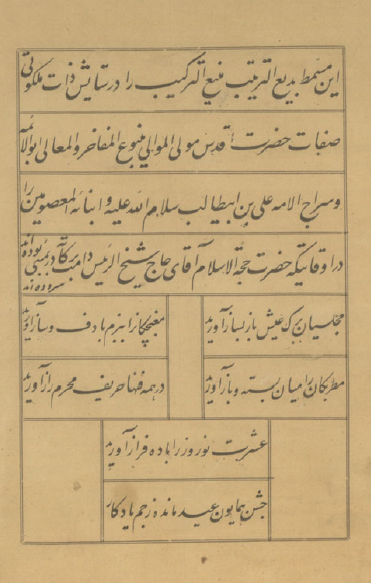 این مسمط بدیع الترتیب منیع الترکیب را در ستایش ذات ملکوتی
صفات حضرت اقدس مولی الموالی منبوع المفاخر و المعالی ابو الائمه
و سراج الامه علی بن ابیطالب سلام الله علیه و ابنائه المعصومین را
در اوقاتیکه حضرت حجة الاسلام آقای حاج شیخ الرئیس دامت برکاته در بمبئی بوده اند
سروده اند
مجلسیان برگ عیش باز بساز آورید
مغبچکانرا ببزم با دف و ساز آورید
مطرکان را میان بسته و باز آورید
در همه فنها حریف محرم راز آورید
عشرت نوروز را باده فراز آورید
جشن همایون عید مانده ز جم یادگار